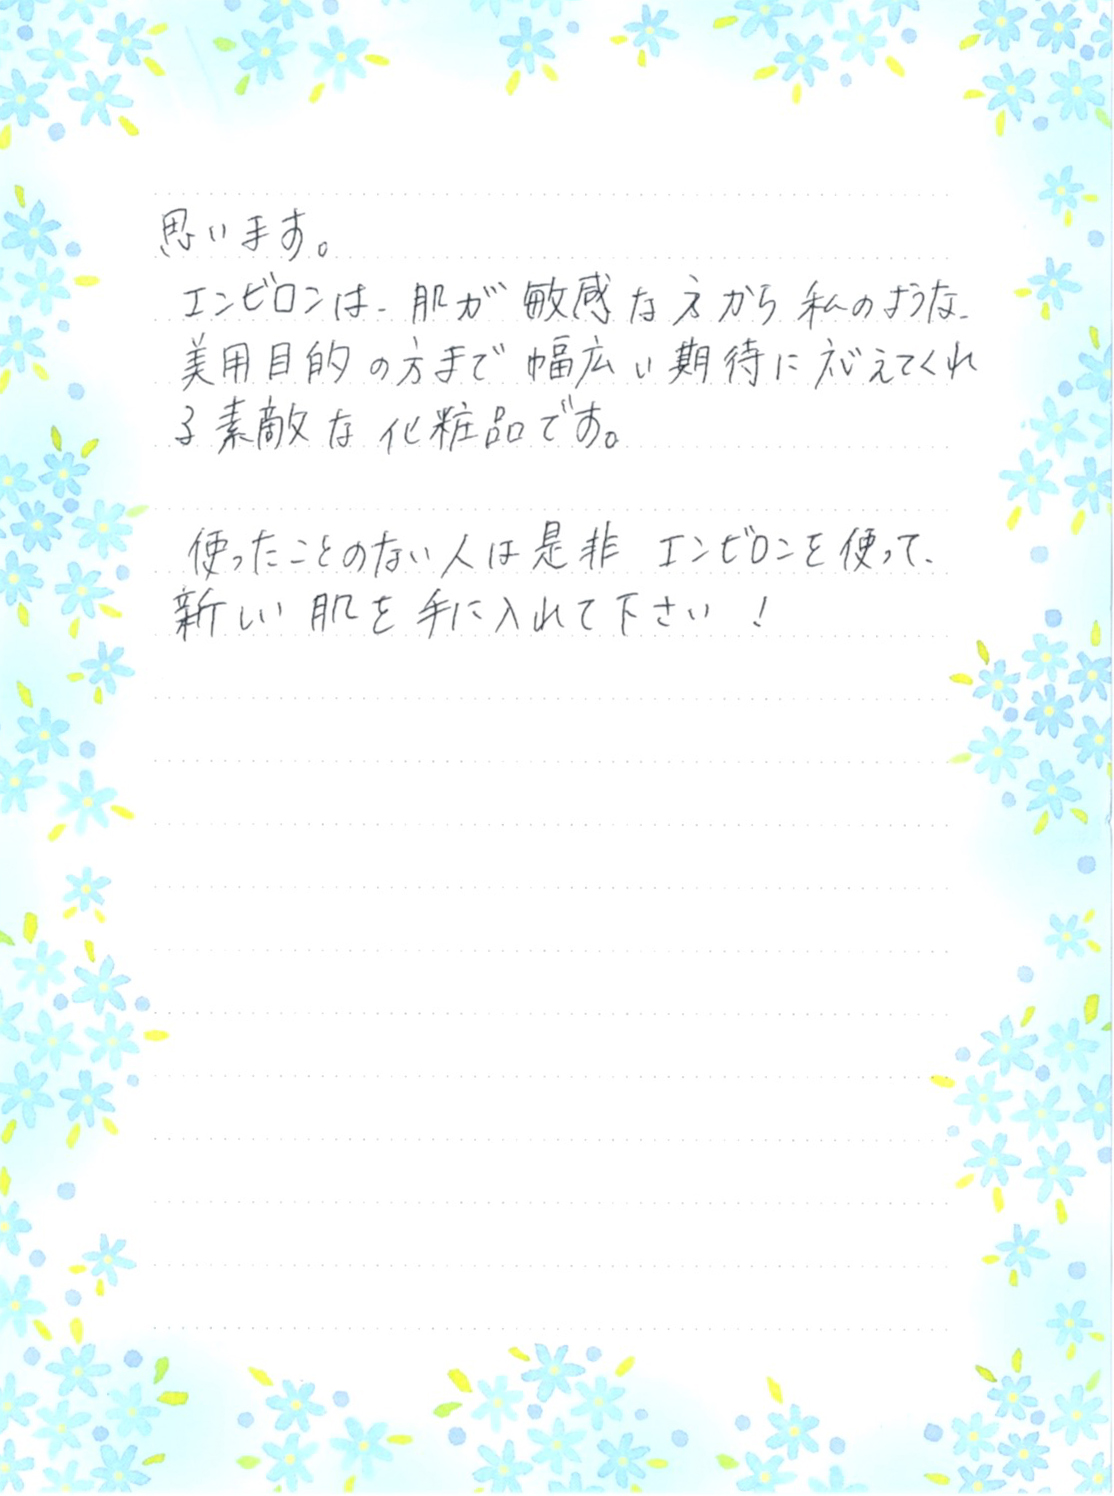 思います。
エンビロンは、肌が敏感な方から私のような
美用目的の方まで幅広い期待に応えてくれ
る素敵な化粧品です。
使ったことのない人は是非 エンビロンを使って、
新しい肌を手に入れて下さい!